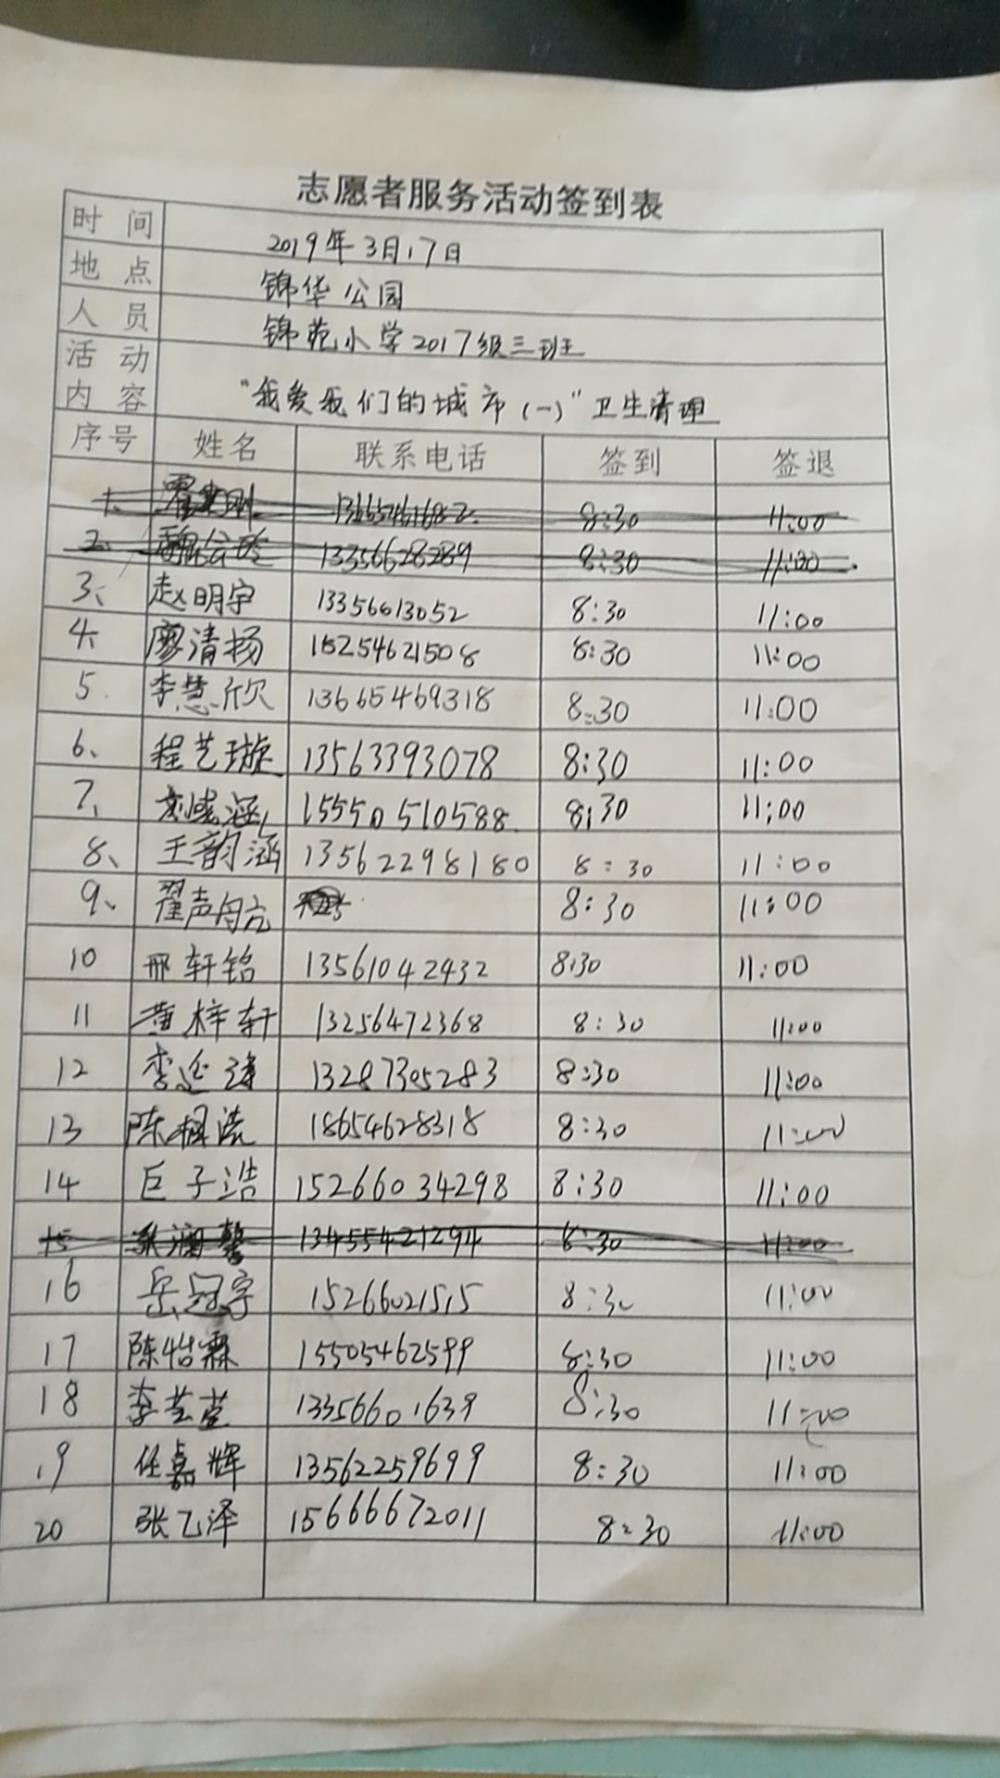 志愿者服务活动签到表
时间 2019年3月17日
地点 锦华公园
人员 锦苑小学2017级三班
活动内容 “我爱我们的城市(一)”卫生清理
序号 姓名 联系电话 签到 签退
1、 8:30 11:00
2、 13356628289 8:30 11:00
3、 赵明宇 13356613052 8:30 11:00
4、 廖清扬 15254621508 8:30 11:00
5. 李慧欣 13665469318 8:30 11:00
6、 程艺璇 13563393078 8:30 11:00
7、 涵 15550510588 8:30 11:00
8、 王韵涵 13562298180 8:30 11:00
9、 翟声 8:30 11:00
10 邢轩铭 13561042432 8:30 11:00
11 黄梓轩 13256472368 8:30 11:00
12 李 13287305283 8:30 11:00
13 陈 18654628318 8:30 11:00
14 巨子浩 15266034298 8:30 11:00
15 张馨 13455421294 8:30 11:00
16 岳冠宇 15266021515 8:30 11:00
17 陈怡霖 15505462599 8:30 11:00
18 李芸萱 13356601639 8:30 11:00
19 任嘉辉 13562259699 8:30 11:00
20 张乙泽 15666672011 8:30 11:00